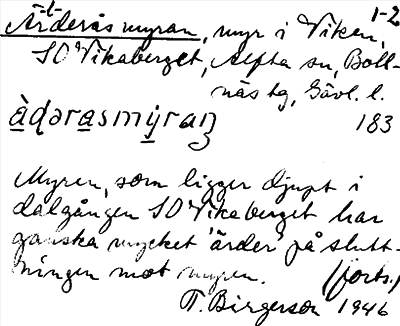 -t- 1-2
Ärderåsmyran, myr i Viken,
SO Vikaberget, Alfta sn, Boll-
näs tg, Gävl. l.
àdərasmýran 183
Myren, som ligger djupt i
dalgången SO Vikaberget har
ganska mycket 'ärder' på slutt-
ningen mot myren. (forts.)
T. Birgerson 1946